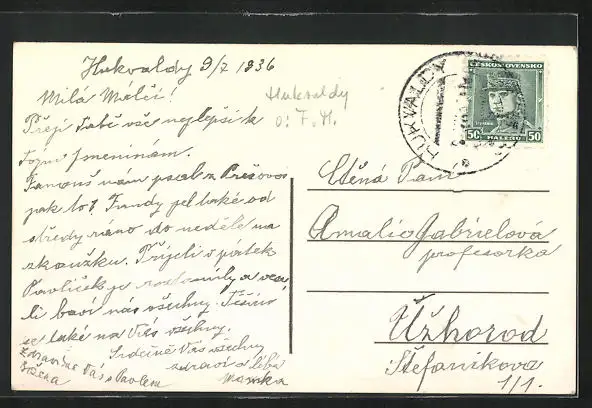 Hukvaldy 9/7 1936
Milá Melči!
Přeji Tobě vše nejlepší k
Tvým jmeninám.
nám psal z Prešova
jak to? Fandy jel také od
středy ráno do neděle na
zkoušku. Přijeli v pátek
Pavlíček je roztomilý a
li baví nás všechny. Těším
se také na Vás všechny.
Srdečně Vás všechny
zdraví a líbá
Mamka
Zdravím Vás s Pavlem
Božena
Hukvaldy
o: F. M.
HUKVALDY
ČESKOSLOVENSKO
50 HALÉŘŮ 50
Ctěná Paní
Amalie Gabrielová
profesorka
Užhorod
Štefánikova
1/1.